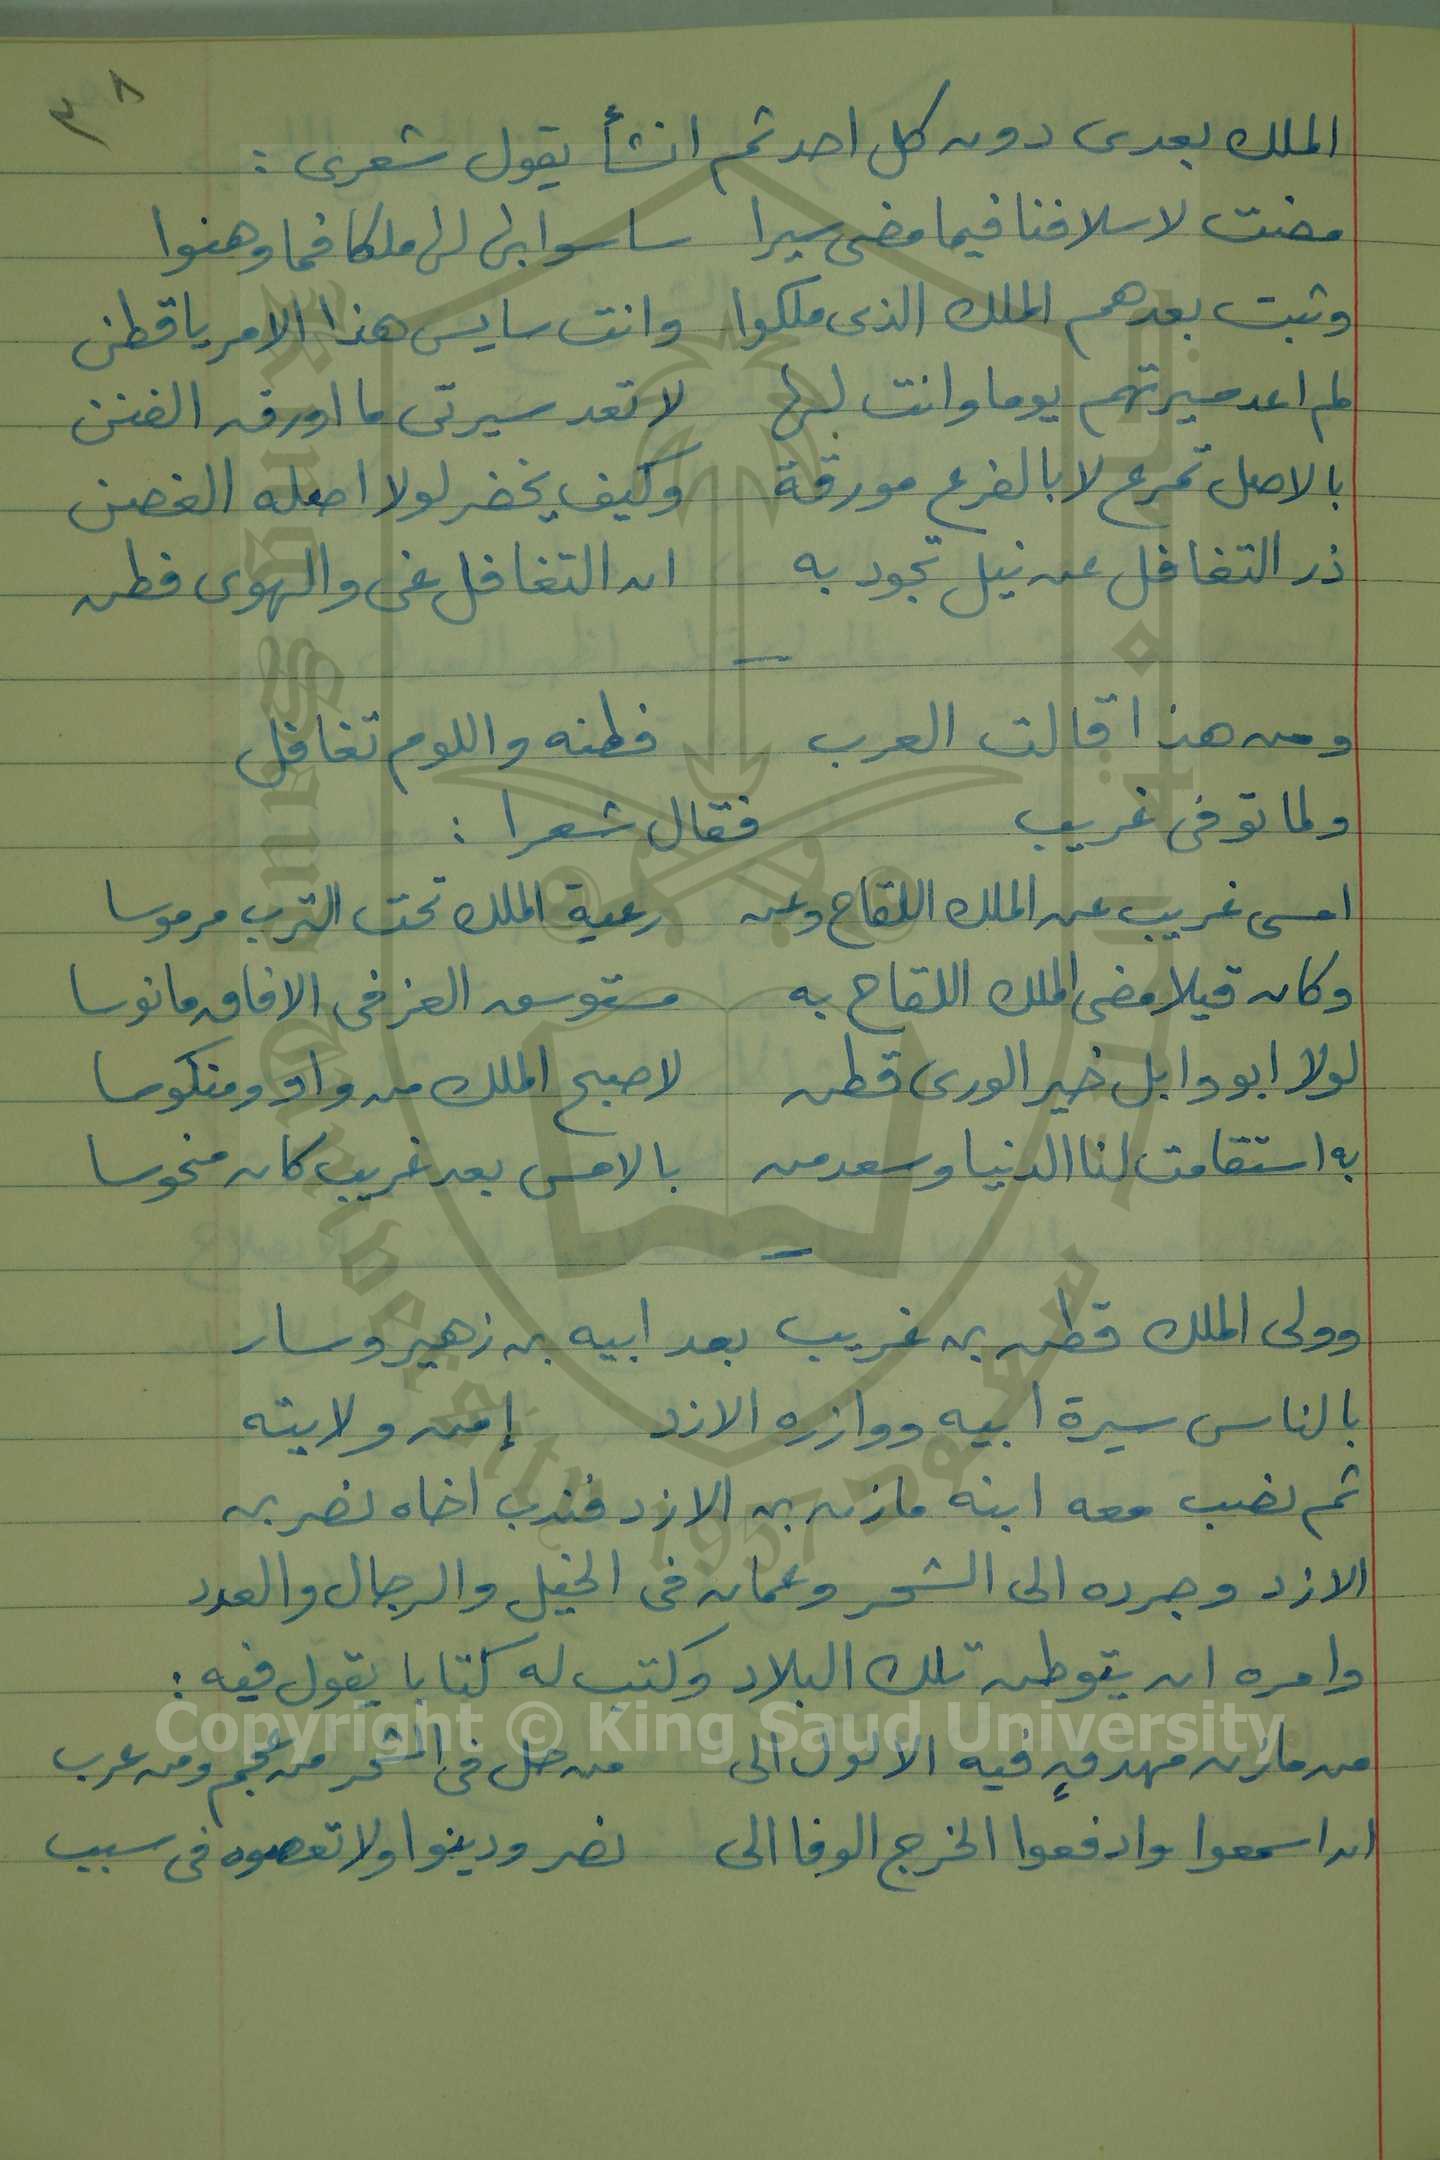 ٣٨
الملك بعدى دون كل احد ثم انشأ يقول شعرى :
مضت لاسلافنا فيما مضى سيرا ساسوا بها لى ملكا فما وهنوا
وثبت بعدهم الملك الذى ملكوا وانت سايس هذا الامر يا قطن
لم اعد سيرتهم يوما وانت لها لا تعد سيرتى ما اورق الفنن
بالاصل تمرع لا بالفرع مورقة وكيف يخضر لولا اصله الغصن
ذر التغافل عن نيل تجود به ان التغافل غى والهوى فطن
ومن هذا قالت العرب فطنه واللوم تغافل
ولما توفى غريب فقال شعرا :
امسى غريب عن الملك اللقاح وعن رعية الملك تحت الترب مرموسا
وكان قيلا مضى الملك اللقاح به مستوسق العز فى الافاق مانوسا
لولا ابو وابل خير الورى قطن لاصبح الملك من واو ومنكوسا
به استقامت لنا الدنيا وسعد من بالامس بعد غريب كان منحوسا
وولى الملك قطن بن غريب بعد ابيه بن زهير وسار
بالناس سيرة ابيه ووازره الازد إمن ولايته
ثم نصب معه ابنه مازن بن الازد فندب اخاه نصر بن
الازد وجرده الى الشحر وعمان فى الخيل والرجال والعدد
وامره ان يتوطن تلك البلاد وكتب له كتابا يقول فيه :
من مازن مهدفٍ فيه الالوك الى من حل فى الشحر من عجم ومن عرب
ان اسمعوا وادفعوا الخرج الوفا الى نصر ودينوا ولا تعصوه فى سبب
Copyright © King Saud University
King Saud University
1957
جامعة الملك سعود